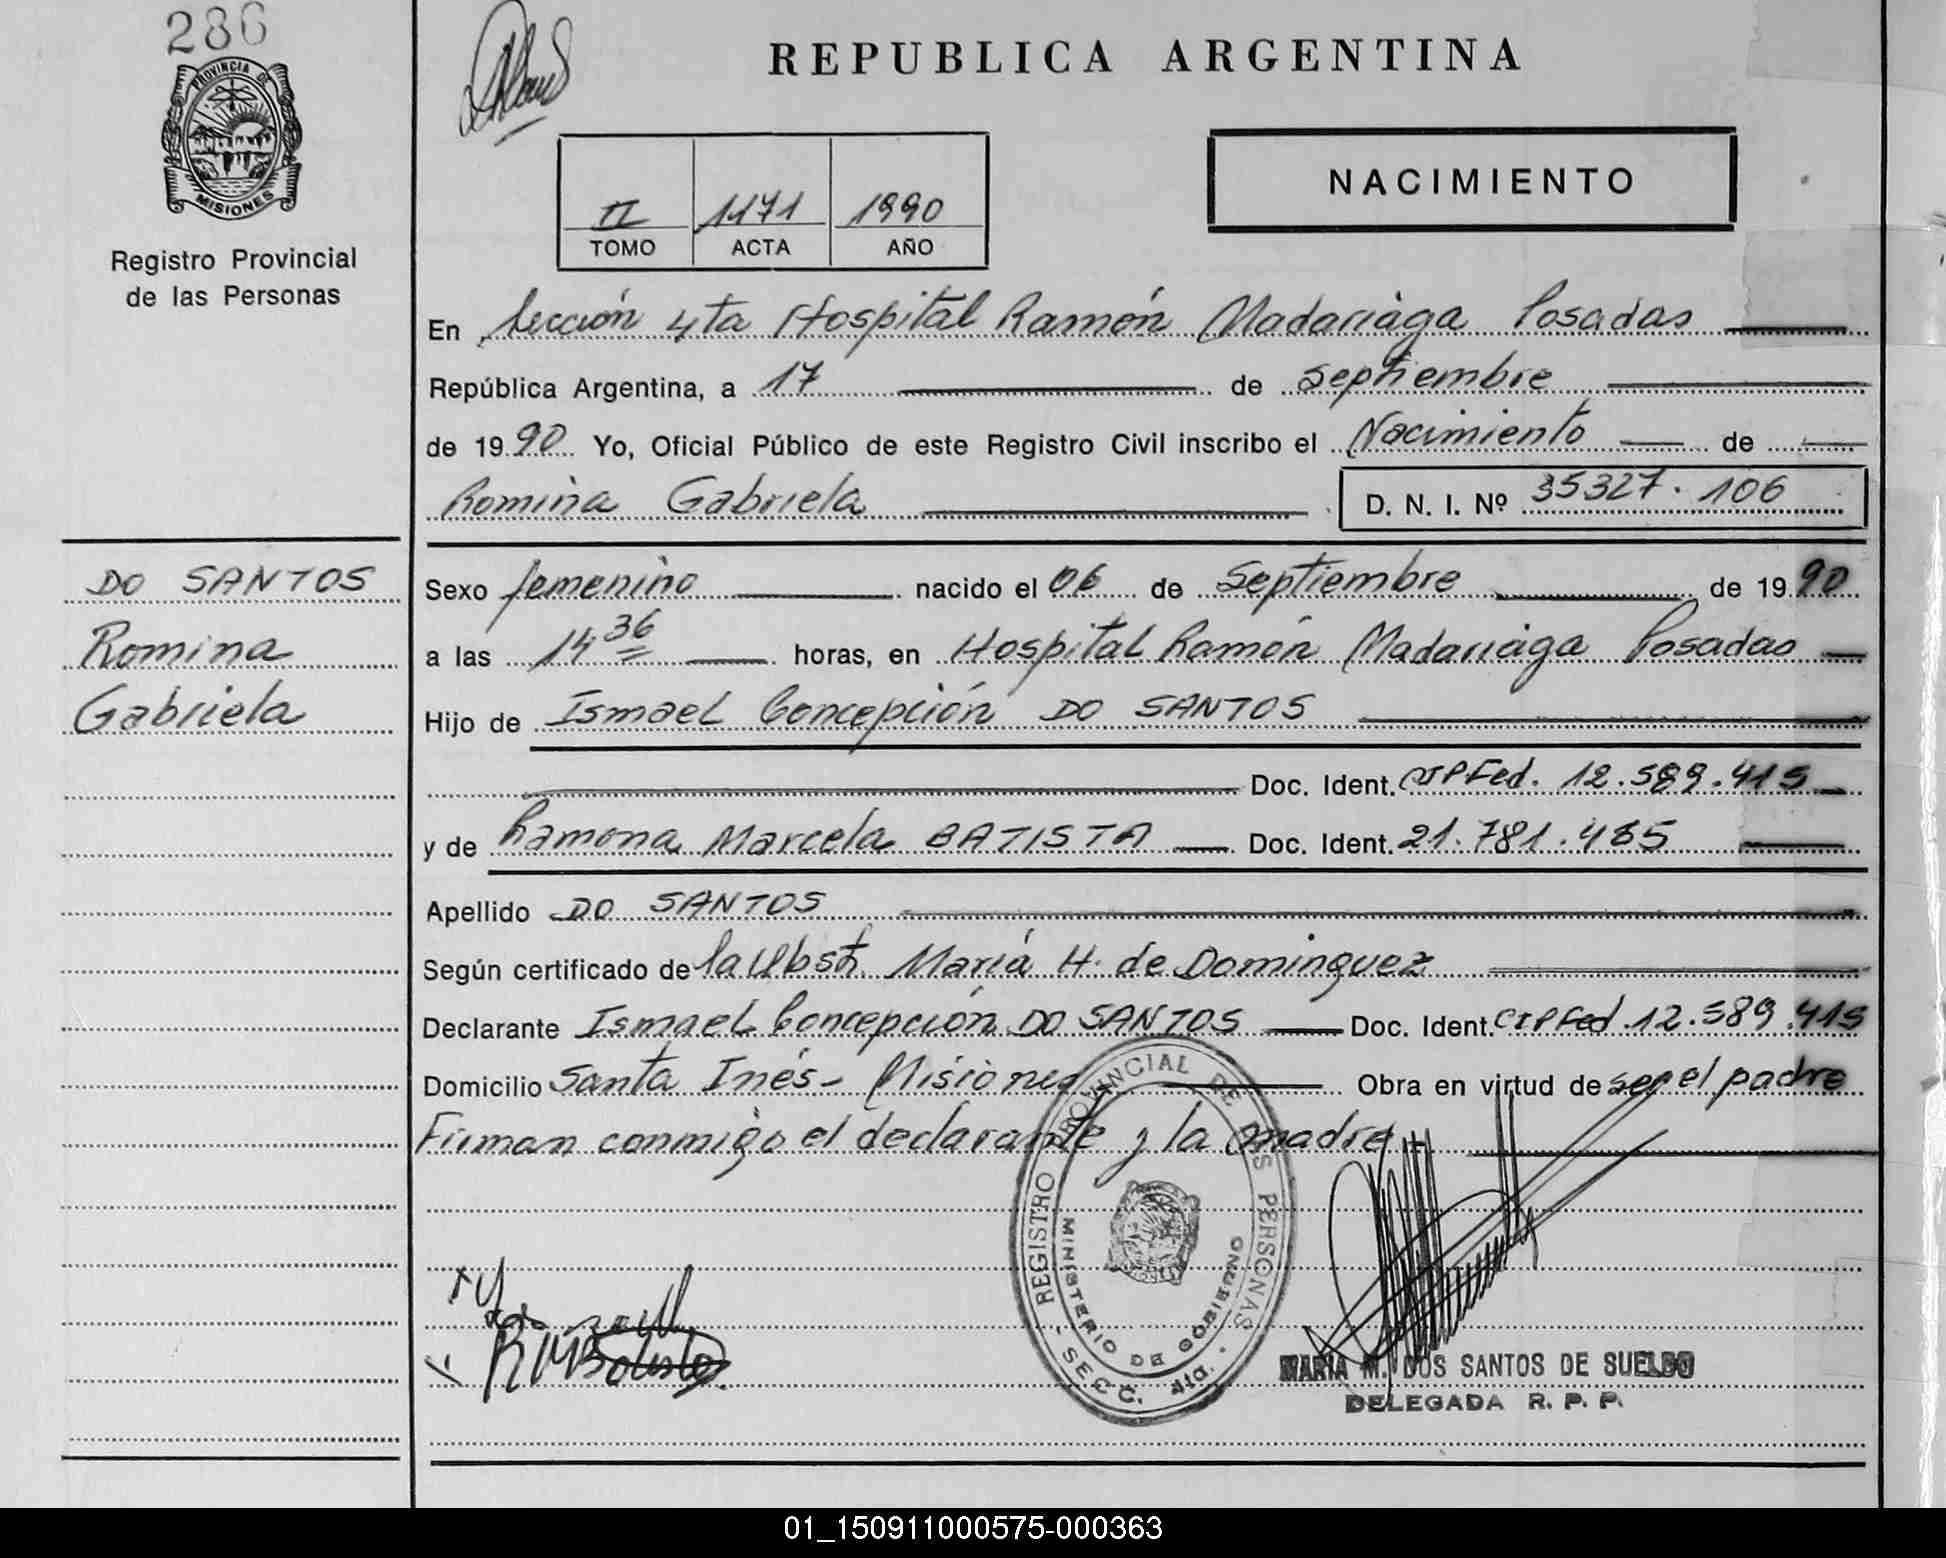 286
PROVINCIA DE
MISIONES
Registro Provincial
de las Personas
DO SANTOS
Romina
Gabriela
REPUBLICA ARGENTINA
II 1171 1990
TOMO ACTA AÑO
NACIMIENTO
En Sección 4ta Hospital Ramón Madariaga Posadas
República Argentina, a 17 de septiembre
de 1990 Yo, Oficial Público de este Registro Civil inscribo el Nacimiento de
Romina Gabriela D. N. I. Nº 35327.106
Sexo femenino nacido el 06 de Septiembre de 1990
a las 14 36 horas, en Hospital Ramón Madariaga Posadas
Hijo de Ismael Concepción DO SANTOS
Doc. Ident. CIPFed. 12.589.415
y de Ramona Marcela BATISTA Doc. Ident. 21.781.465
Apellido DO SANTOS
Según certificado de la Obst. María H. de Dominguez
Declarante Ismael Concepción DO SANTOS Doc. Ident. CIPFed 12.589.415
Domicilio Santa Inés - Misiones Obra en virtud de ser el padre
Firman conmigo el declarante y la madre -
REGISTRO PROVINCIAL DE LAS PERSONAS
MINISTERIO DE GOBIERNO
- SECC. 4ta. -
MARIA M. DOS SANTOS DE SUELDO
DELEGADA R. P. P.
01_150911000575-000363